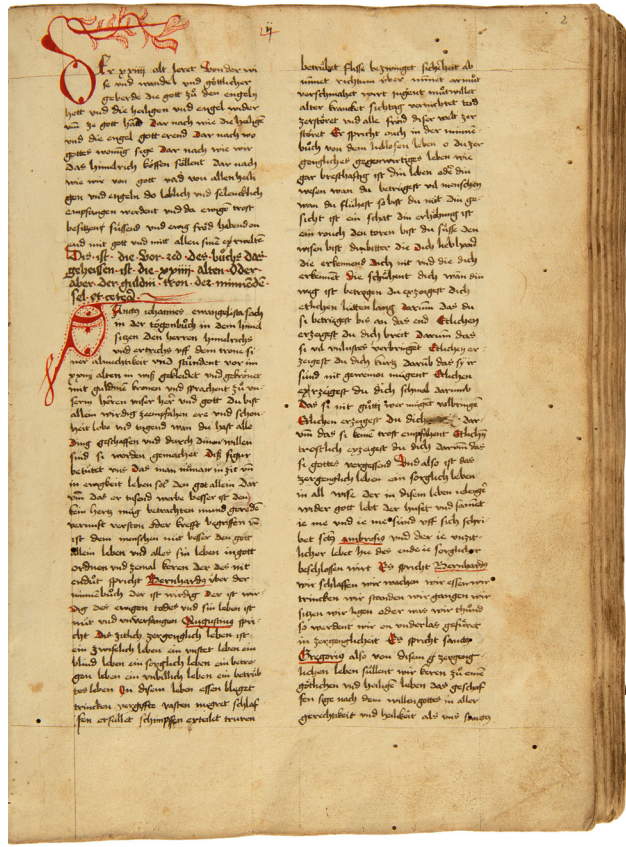 ij
2
Der xxiiij alt leret von der wi
se und wandel und göttlicher
geberde die gott zů den engeln
hett und die heiligen und engel wider
um ze gott hand Dar nach wie die heilgen
und die engel gott erend Dar nach wo
gottes wonung sige Dar nach wie wir
das himelrich köffen söllent Dar nach
wie wir von gott vnd von allen heili
gen und engeln do loblich und selencklich
empfangen werdent und da ewigen trost
besitzent süssend und ewig fröd habend on
end mit got und mit allen sinen erwelte
Dis · ist · die · vor · red · des · bůchs das
geheissen · ist · die · xxiiij · alten · Oder
aber · der guldin · tron · der · minnēdē
sel · et cetera
Sanctus iohannes ewangelista sach
in der togenbůch in dem himel
sitzen den herren himelrichs
und ertrichs uff dem trone si
ner almechtikeit und stůndent vor im
xxiiij alten in wiß gekleidet und gekrönet
mit guldinē kronen und sprachent zů un
serm herren unser herr und gott du bist
allein wirdig ze empfahen ere und schon
heit lobe und tugend wan du hast alle
ding geschaffen und durch dinen willen
sind si worden gemachet Disi figur
betütet uns Das man niemand in zit noch
in ewigkeit leben sol den got allein Dar
um Das er tusend werbe besser ist den
kein hertz mag betrachten mund gereden
vernufft verston oder krefft begriffen un
ist dem menschen nit besser den gott
allein leben und alles sin leben in gott
ordnen und zemal keren der des nit
endůt spricht Bernhardus über der
minnē bůch der ist wirdig der ist wir
dig des ewigen todes und sin leben ist
nüt und unverfangen Augustinus spri
cht Dis zitlich zergenglich leben ist
ein zwifelich leben ein unstet leben ein
blind leben ein sorglich leben ein betro
gen leben ein unbillich leben ein betrüb
tes leben In disem leben essen bleget
trincken vergifft vasten megret schlaf
fen ersület schimpfen erteilet truren
betrübet flisse bezwinget sicherheit ab
nimet richtum über nimet armůt
verschmahet wirt jugent můtwillet
alter kranckt siechtag vernichtet tod
zerstöret und alle fröid diser welt zer
störet Er spricht ouch in der minne
bůch von dem liblosen leben o du zer
gengliches gegenwertiges leben wie
gar bresthafftig ist din leben oder din
wesen wan du betrügest vil menschen
wan du flühest so bist du nüt din ge
sicht ist ein schat din erhöhung ist
ein rouch den toren bist du süsse den
wisen bist du bitter die dich lieb hand
die erkennend dich nit und die dich
erkennēt die schühent dich wan din
weg ist betrogen du erzeigst dich
etlichen lütten lang darum das du
si betriegest bis an das end Etlichen
erzeigest du dich breit darum das
si vil wlustes verbringēt Etlichen er
zeigest du dich kurtz darub das si ir
sünd nit gerewen mügent Etlichen
erzeigest du dich schmal darumb
Das si nit gůttū wercke mügent volbringē
Etlichen erzeigest du dich dar
um das si keinē trost empfahent Etlichē
trostlich erzeigest du dich darum das
si gottes vergessend Und also ist das
zergenglich leben ein sorglich leben
in all wise Der in disem leben iderge
wider gott lebt der huset und samlet
ie me und ie me sünd uff sich schri
bet sctus ambrosius und der ie unzit
licher lebet hie des ende ie sorglicher
beschlossen wirt Es spricht Bernhardus
wir schlaffen wir wachen wir essen wir
trincken wir standen wir gangen wir
sitzen wir ligen oder was wir thůnd
so werdent wir on underlas gefüret
in zergenglicheit Es spricht sanctus
Gregorius also von disem zergeng
lichen leben süllent wir keren zů einē
götlichen und heiligē leben das geschaf
fen sige nach dem willen gottes in aller
gerechtikeit und heilikeit als uns sanctus